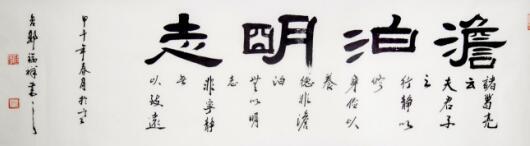 澹泊明志
諸葛亮
云
夫君子
之
行静以
修
身俭以
養
德非澹
泊
無以明
志
非寧静
無
以致遠
甲午年春月於